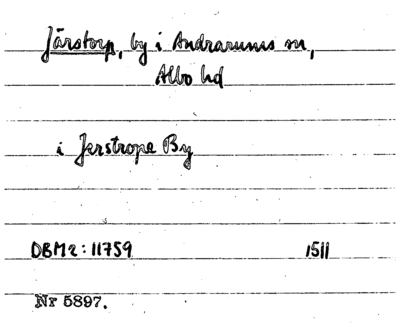 Järstorp, by i Andrarums sn,
Albo hd
i Jerstrope By
DBM2:11759 1511
Nr 5897.